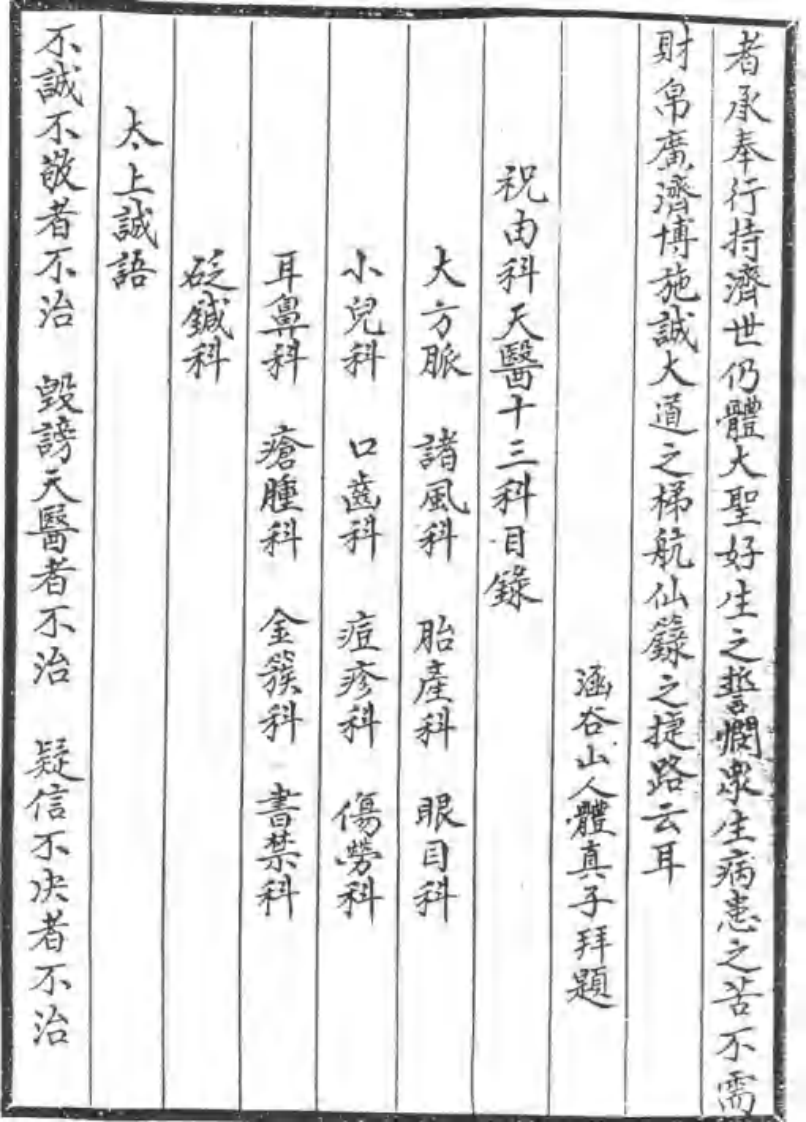 者承奉行持濟世仍體大聖好生之誓憫衆生病患之苦不需
財帛廣濟博施誠大道之梯航仙籙之捷路云耳
涵谷山人體真子拜題
祝由科天醫十三科目錄
大方脈　諸風科　胎產科　眼目科
小兒科　口齒科　痘疹科　傷勞科
耳鼻科　瘡腫科　金簇科　書禁科
砭鍼科
太上誠語
不誠不敬者不治　毀謗天醫者不治　疑信不決者不治